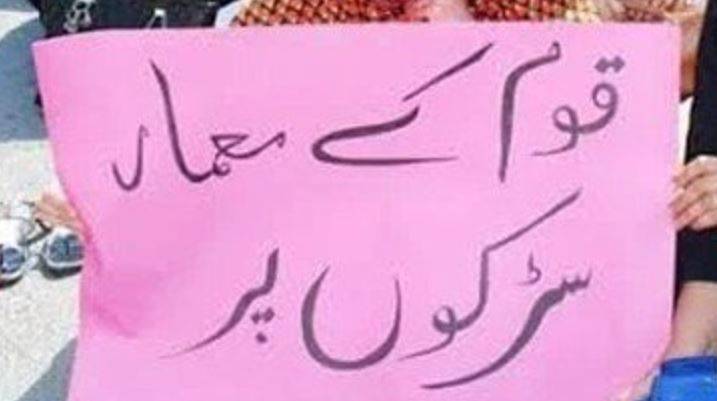 قوم کے معمار
سڑکوں پر